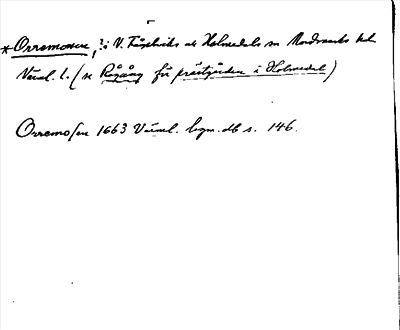 *Orremossen, i V. Fågelviks o. Holmedals sn Nordmarks hd
Värml. l. (se Rågång för prästgården i Holmedal)
Orremosen 1663 Värml. l. db s. 146.